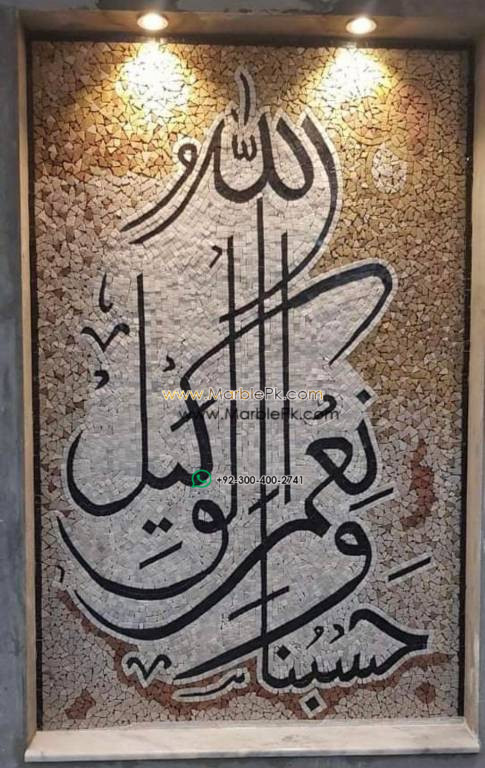 حَسْبُنَا اللّٰه وَنِعْمَ الْوَكِيل
www.MarblePk.com
www.MarblePk.com
+92-300-400-2741